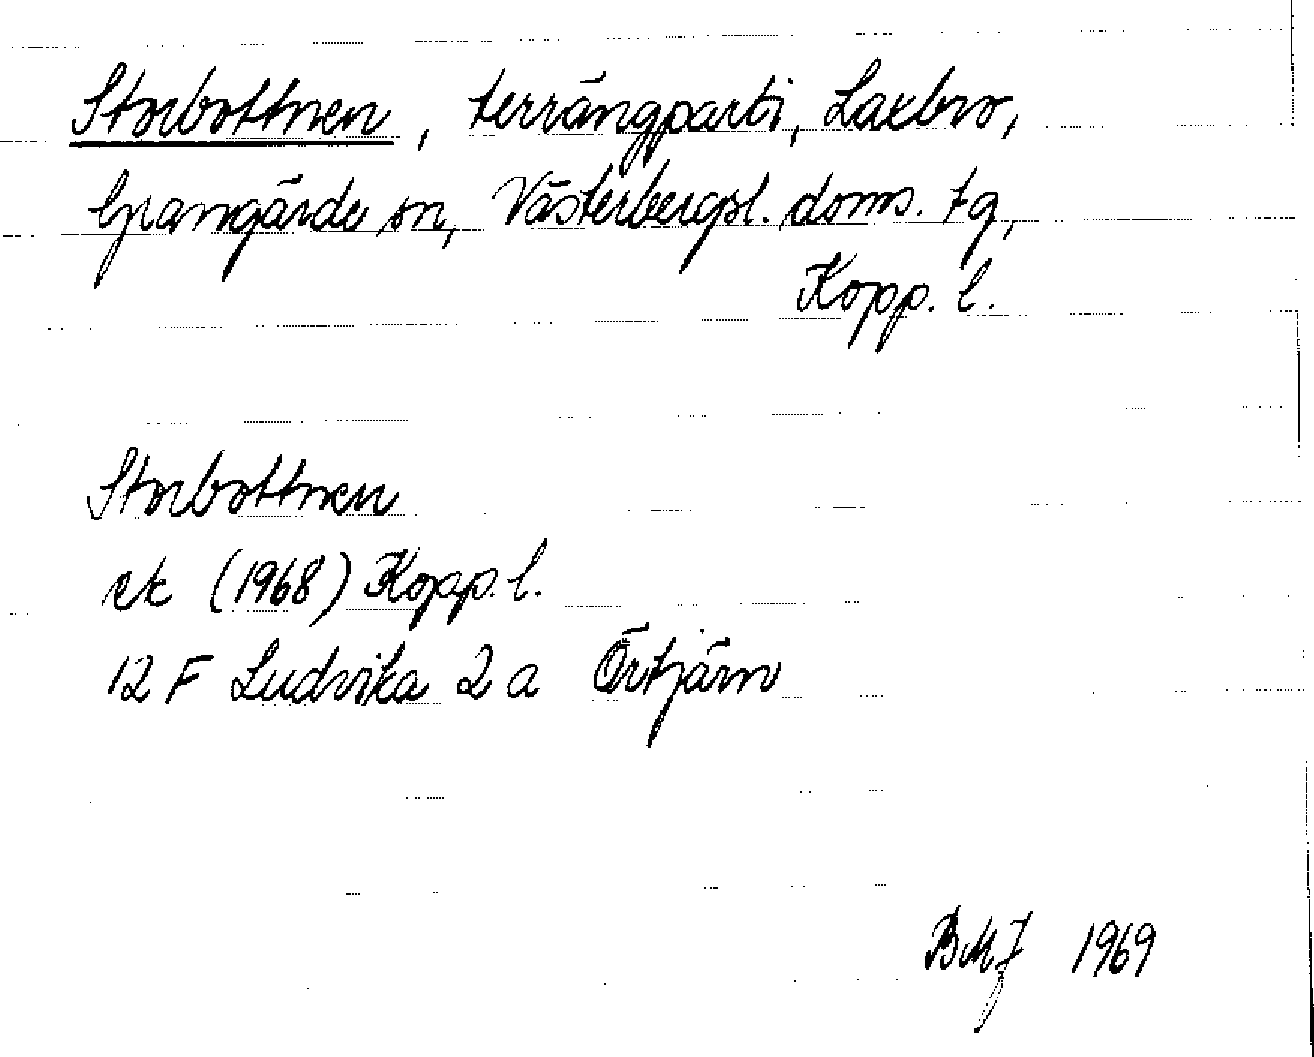 Storbottnen, terrängparti, Laxbro,
Grangärde sn, Västerbergsl. doms. tg,
Kopp. l.
Storbottnen
ek (1968) Kopp. l.
12 F Ludvika 2 a Örtjärn
BMJ 1969